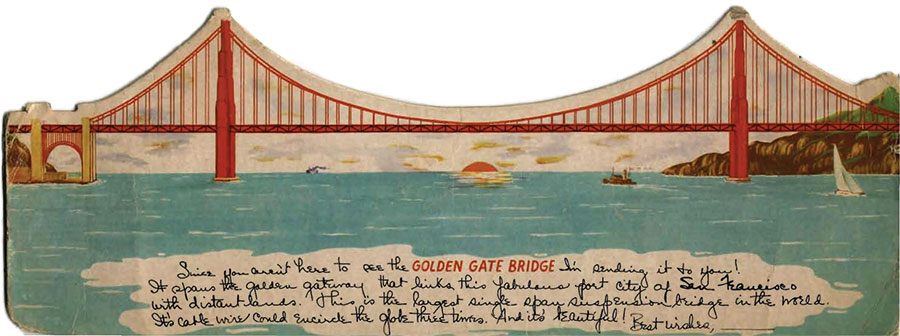 Since you aren't here to see the GOLDEN GATE BRIDGE I'm sending it to you!
It spans the golden gateway that links this fabulous port city of San Francisco
with distant lands. This is the largest single span suspension bridge in the world.
It's cable wire could encircle the globe three times. And it's beautiful! Best wishes,